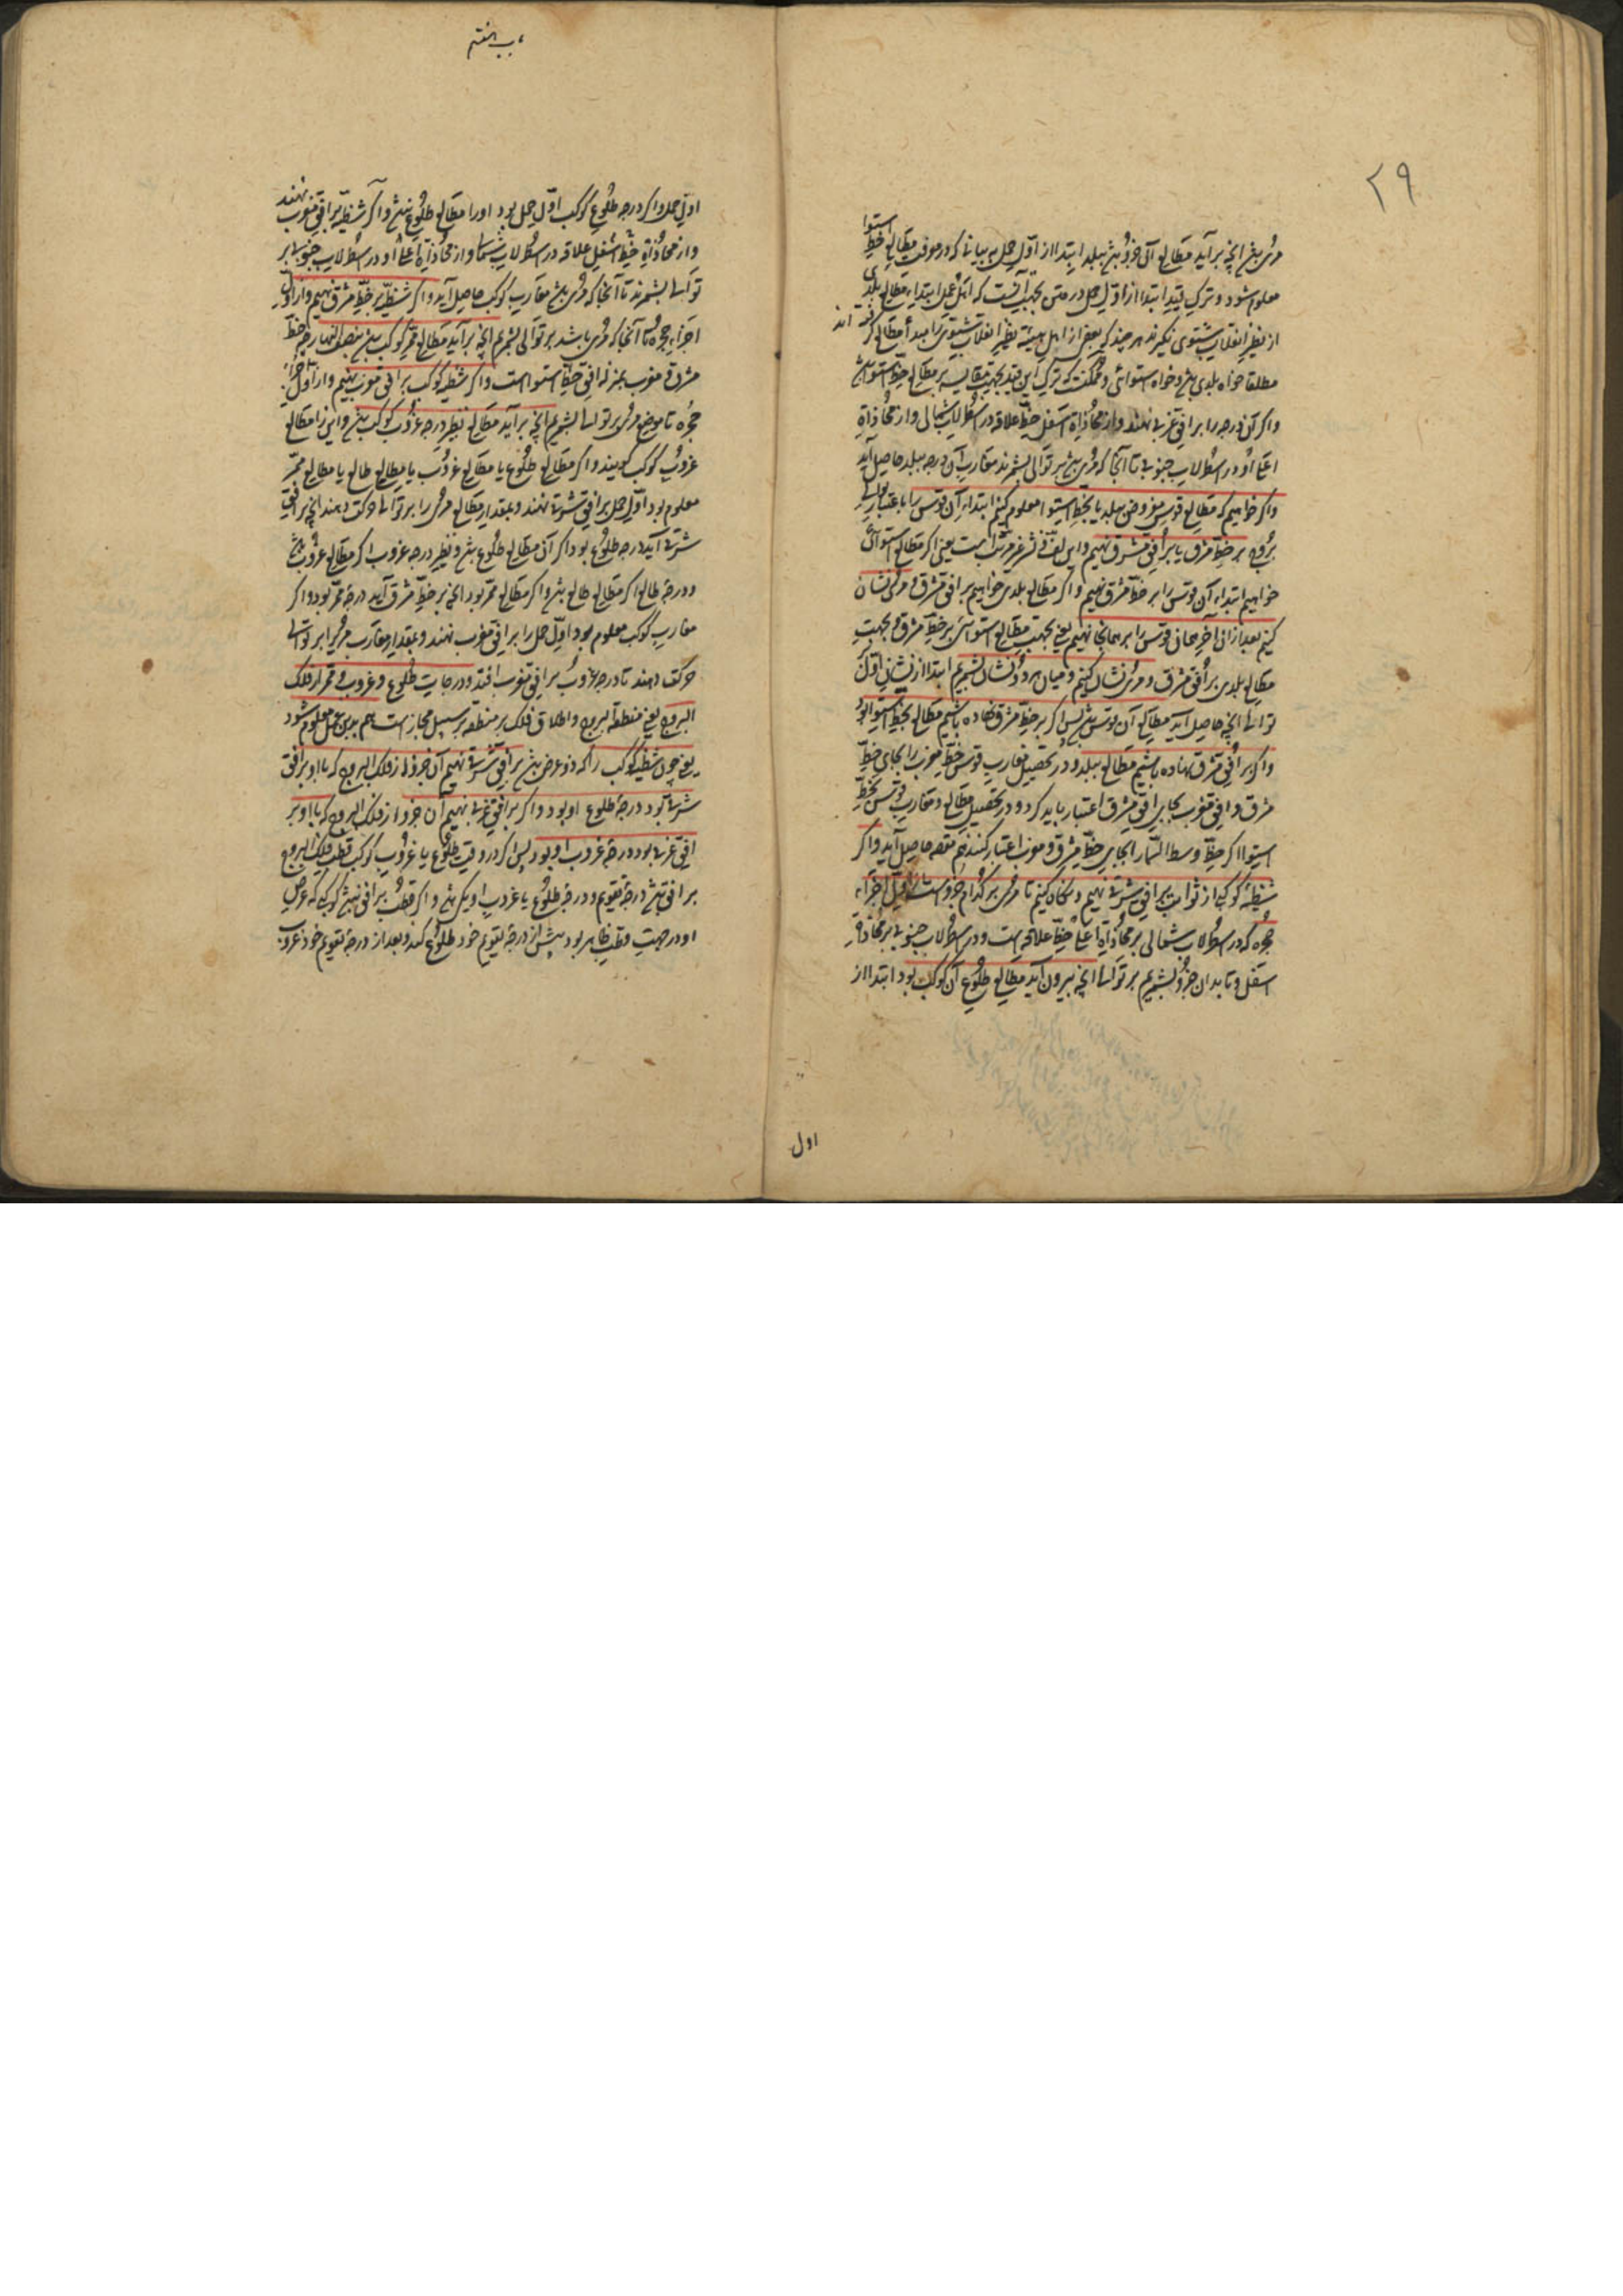 ۲۹
مری بشد انچه برآید مطالع آن جزو بشد ببلد ابتدا از اول حمل به بیانی که در معرفت مطالع خط استوا
معلوم شود و ترک قید ابتدا از اول حمل در متن بجهت آنست که اهل عمل ابتداء مطالع بلدی
از نظیر انقلاب شتوی نگیرند هر چند که بعضی از اهل هیئه نظیر انقلاب شتوی را مبدأ مطالع گرفته اند
مطلقا خواه بلدی بشد و خواه استوائی و ممکنست که ترک این قید بجهت مقایسه بر مطالع خط استوا بشد
و اگر آن درجه را بر افق غربی نهند و از محاذاة اسفل خط علاقه در اسطرلاب شمالی و از محاذاة
اعلا او در اسطرلاب جنوبی تا آنجا که مری بشد بر توالی بشمرند مغارب آن درجه ببلد حاصل آید
و اگر خواهیم که مطالع قوس مفروض ببلد یا بخط استوا معلوم کنیم ابتداء آن قوس را باعتبار توالی
بروج بر خط مشرق یا بر افق مشرق نهیم و این لف و نشر غیر مرتب است یعنی اگر مطالع استوائی
خواهیم ابتداء آن قوس را بر خط مشرق نهیم و اگر مطالع بلدی خواهیم بر افق مشرق و مری نشان
کنیم بعد از ان آخر همان قوس را بر همانجا نهیم یعنی بجهت مطالع استوائی بر خط مشرق و بجهت
مطالع بلدی بر افق مشرق و مری نشان کنیم و میان هر دو نشان بشمریم ابتدا از نشان اول
توالی انچه حاصل آید مطالع آن قوس بشد پس اگر بر خط مشرق نهاده باشیم مطالع بخط استوا بود
و اگر بر افق مشرق نهاده باشیم مطالع ببلد و در تحصیل مغارب قوس خط مغرب را بجای خط
مشرق و افق مغرب بجای افق مشرق اعتبار باید کرد و در تحصیل مطالع و مغارب قوس بخط
استوا اگر خط وسط السما را بجای خط مشرق و مغرب اعتبار کنند هم مقصد حاصل آید و اگر
شظیه کوکبی از ثوابت بر افق شرقی نهیم و نگاه کنیم تا مری بر کدام جزو است از اول اجزاء
حجره که در اسطرلاب شمالی بر محاذاة اعلا خط علاقه است و در اسطرلاب جنوبی بر محاذاة
اسفل و تا بدان جزو بشمریم بر توالی انچه بیرون آید مطالع طلوع آن کوکب بود ابتدا از
اول
باب هفتم
اول حمل و اگر درجه طلوع کوکب اول حمل بود او را مطالع طلوع نبشد و اگر شظیه بر افق مغرب نهند
و از محاذاة خط اسفل علاقه در اسطرلاب شمالی و از محاذاة اعلا او در اسطرلاب جنوبی بر
توالی بشمرند تا آنجا که مری بشد مغارب کوکب حاصل آید و اگر شظیه بر خط مشرق نهیم و از اول
اجزاء حجره تا آنجا که مری باشد بر توالی بشمریم انچه برآید مطالع ممر کوکب بشد بنصف النهار چه خط
مشرق و مغرب بمنزله افق خط استوا است و اگر شظیه کوکب بر افق مغرب نهیم و از اول اجزاء
حجره تا موضع مری بر توالی بشمریم انچه برآید مطالع نظیر درجه غروب کوکب بشد و این را مطالع
غروب کوکب گویند و اگر مطالع طلوع یا مطالع غروب یا مطالع طالع یا مطالع ممر
معلوم بود اول حمل بر افق شرقی نهند و بمقدار مطالع مری را بر توالی حرکت دهند انچه بر افق
شرقی آید درجه طلوع بود اگر آن مطالع طلوع بشد و نظیر درجه غروب اگر مطالع غروب بشد
و درجه طالع اگر مطالع طالع بشد و اگر مطالع ممر بود انچه بر خط مشرق آید درجه ممر بود و اگر
مغارب کوکب معلوم بود اول حمل را بر افق مغرب نهند و بمقدار مغارب مری را بر توالی
حرکت دهند تا درجه غروب بر افق مغرب افتد و درجات طلوع و غروب و ممر از فلک
البروج یعنی منطقة البروج و اطلاق فلک بر منطقه بر سبیل مجاز است هم بدین عمل معلوم شود
یعنی چون شظیه کوکب را که ذو عرض بشد بر افق شرقی نهیم آن جزو از فلک البروج که با او بر افق
شرقی بود درجه طلوع او بود و اگر بر افق غربی نهیم آن جزو از فلک البروج که با او بر
افق غربی بود درجه غروب او بود پس اگر در وقت طلوع یا غروب کوکب قطب فلک البروج
بر افق بشد درجه تقویم و درجه طلوع یا غروب او یکی بشد و اگر قطب بر افق نبشد کوکبی که عرض
او در جهت قطب ظاهر بود پیش از درجه تقویم خود طلوع کند و بعد از درجه تقویم خود غروب